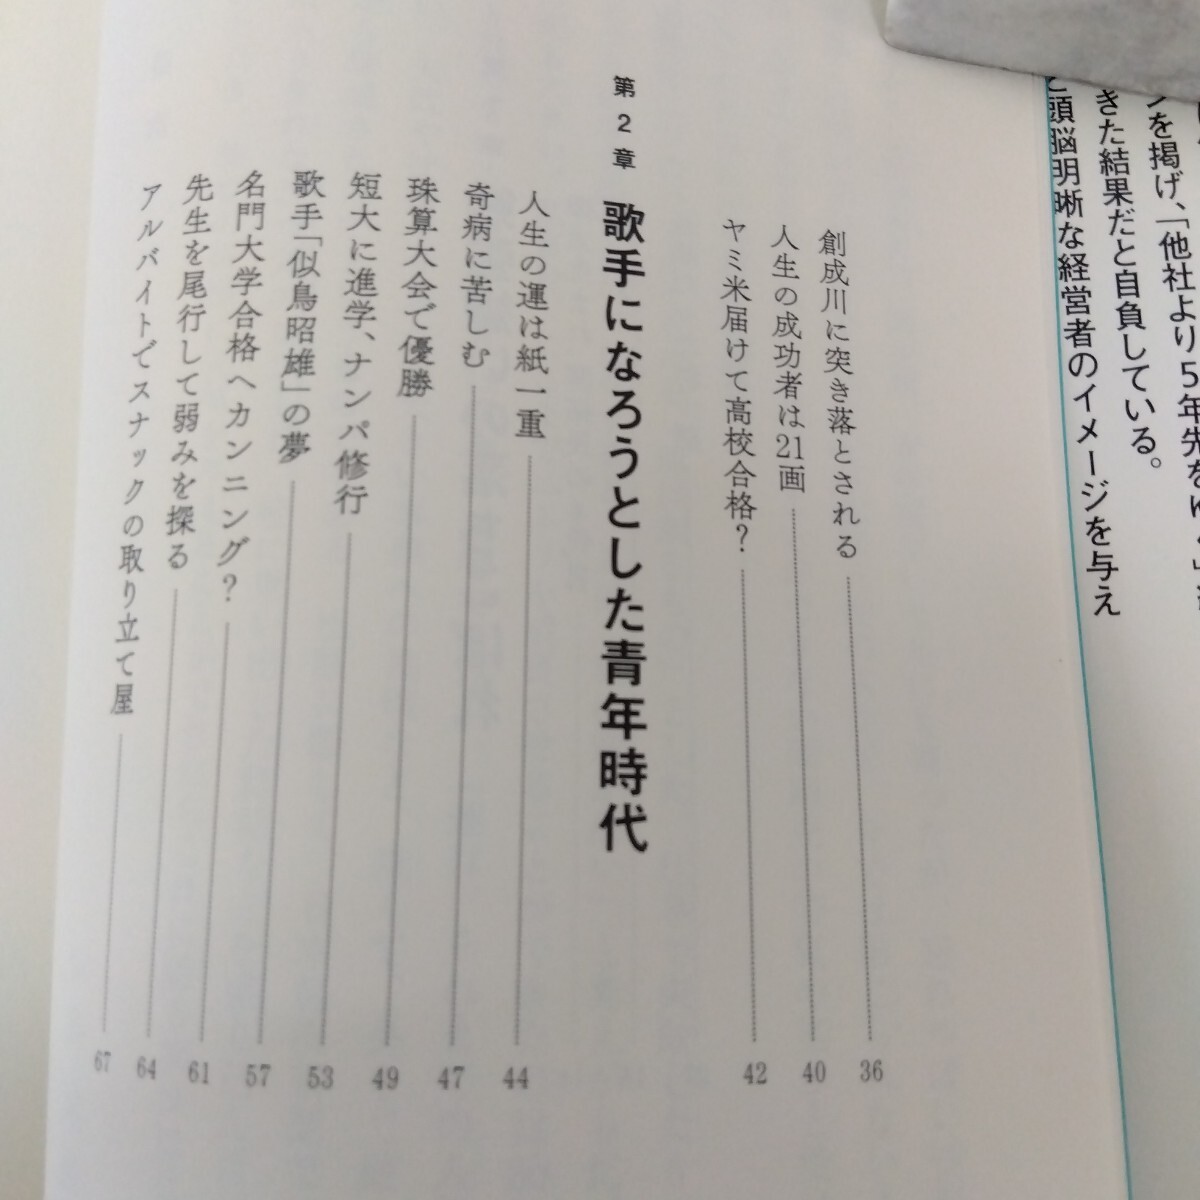 を掲げ、「他社より5年先を
きた結果だと自負している。
頭脳明晰な経営者のイメージを与え
創成川に突き落とされる 36
人生の成功者は21画 40
ヤミ米届けて高校合格? 42
第2章 歌手になろうとした青年時代
人生の運は紙一重 44
奇病に苦しむ 47
珠算大会で優勝 49
短大に進学、ナンパ修行 53
歌手「似鳥昭雄」の夢 57
名門大学合格へカンニング? 61
先生を尾行して弱みを探る 64
アルバイトでスナックの取り立て屋 67